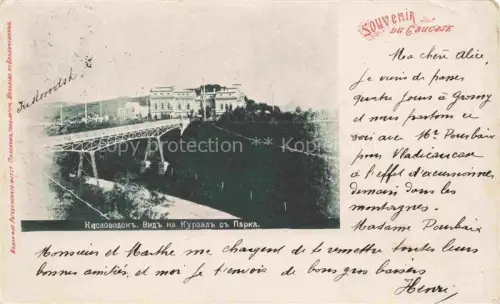 Souvenir
DU Caucase
Kislovodsk
Ma chère Alice,
Je viens de passer
quatre jours à Grosny
et nous partons ce
soir avec Mr Pourbaix
pour Vladicaucase
à l'effet d'excursionner
demain dans les
montagnes.
Madame Pourbaix
Кисловодскъ. Видъ на Курзалъ съ Парка.
Monsieur et Marthe me chargent de te remettre toutes leurs
bonnes amitiés et moi je t'envoie de bons gros baisers
Henri
Copyright protection